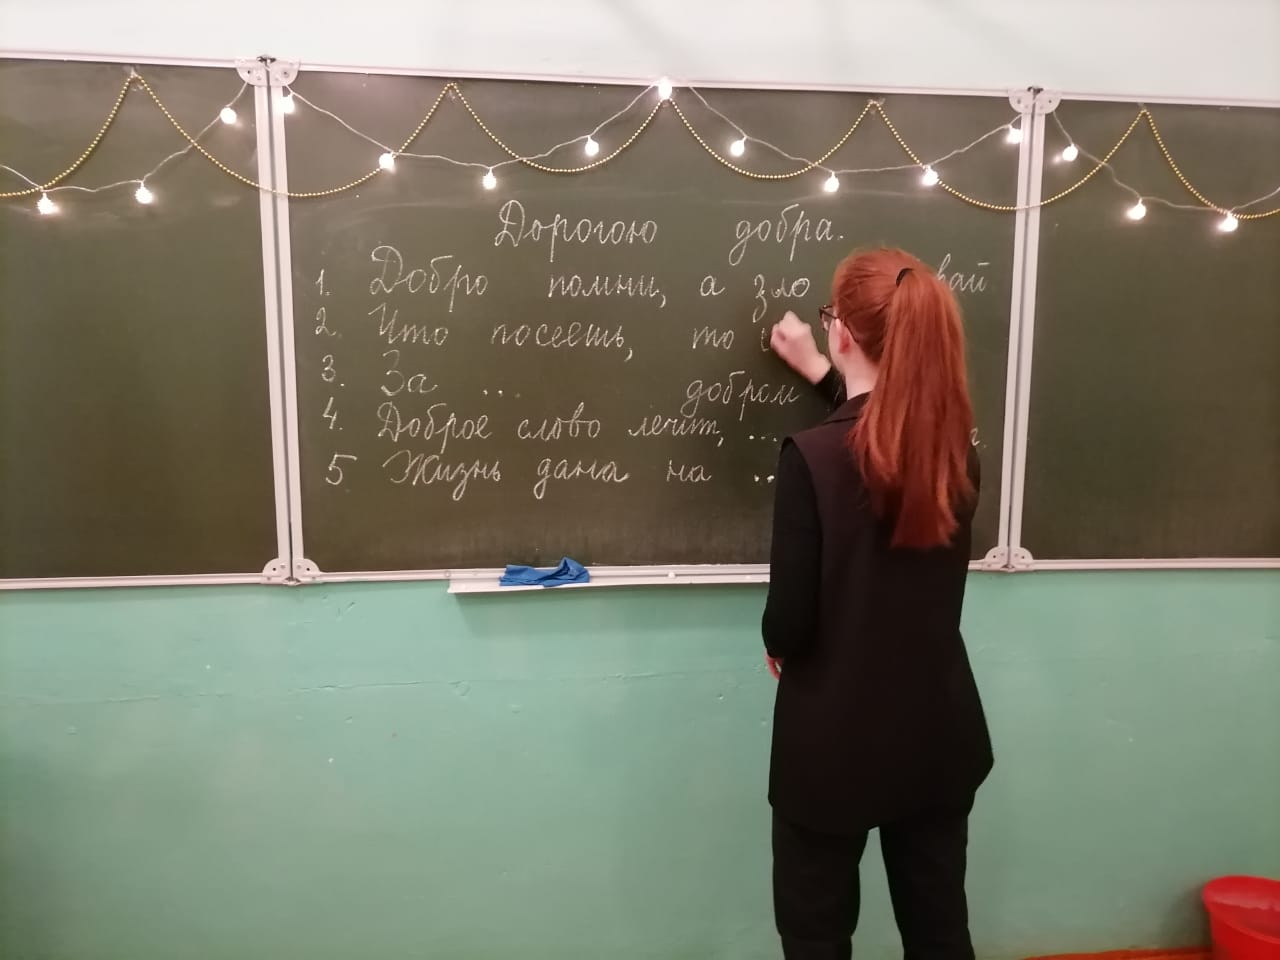 Дорогою добра.
1. Добро помни, а зло вай
2. Что посеешь, то и
3. За .. добром
4. Доброе слово лечит, ... .
5 Жизнь дана на ..